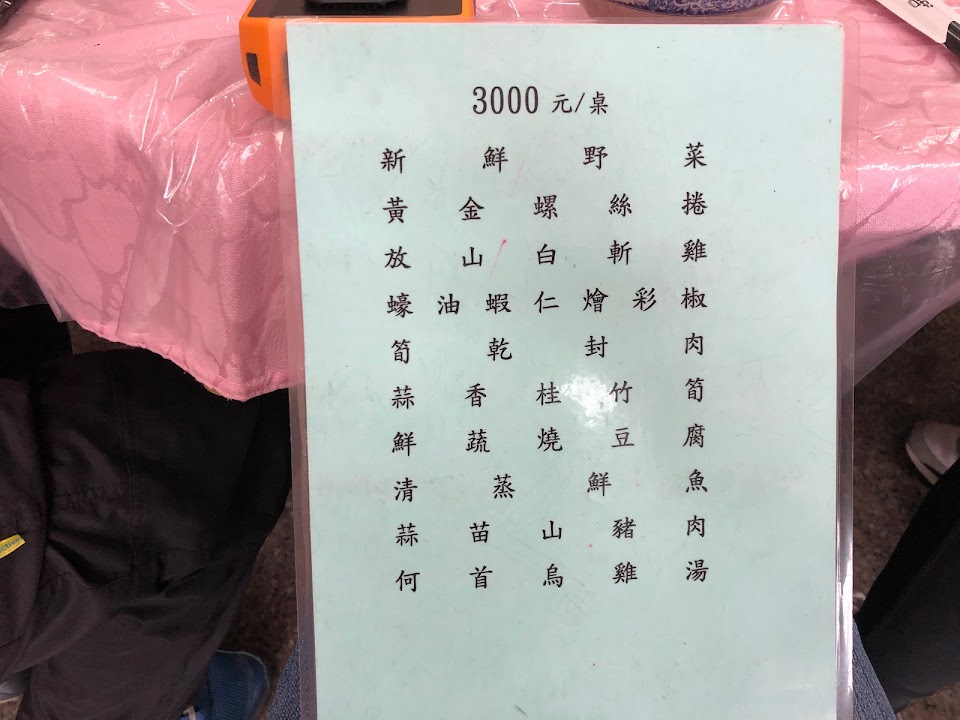 3000 元/桌
新鮮野菜
黃金螺絲捲
放山白斬雞
蠔油蝦仁燴彩椒
筍乾封肉
蒜香桂竹筍
鮮蔬燒豆腐
清蒸鮮魚
蒜苗山豬肉
何首烏雞湯